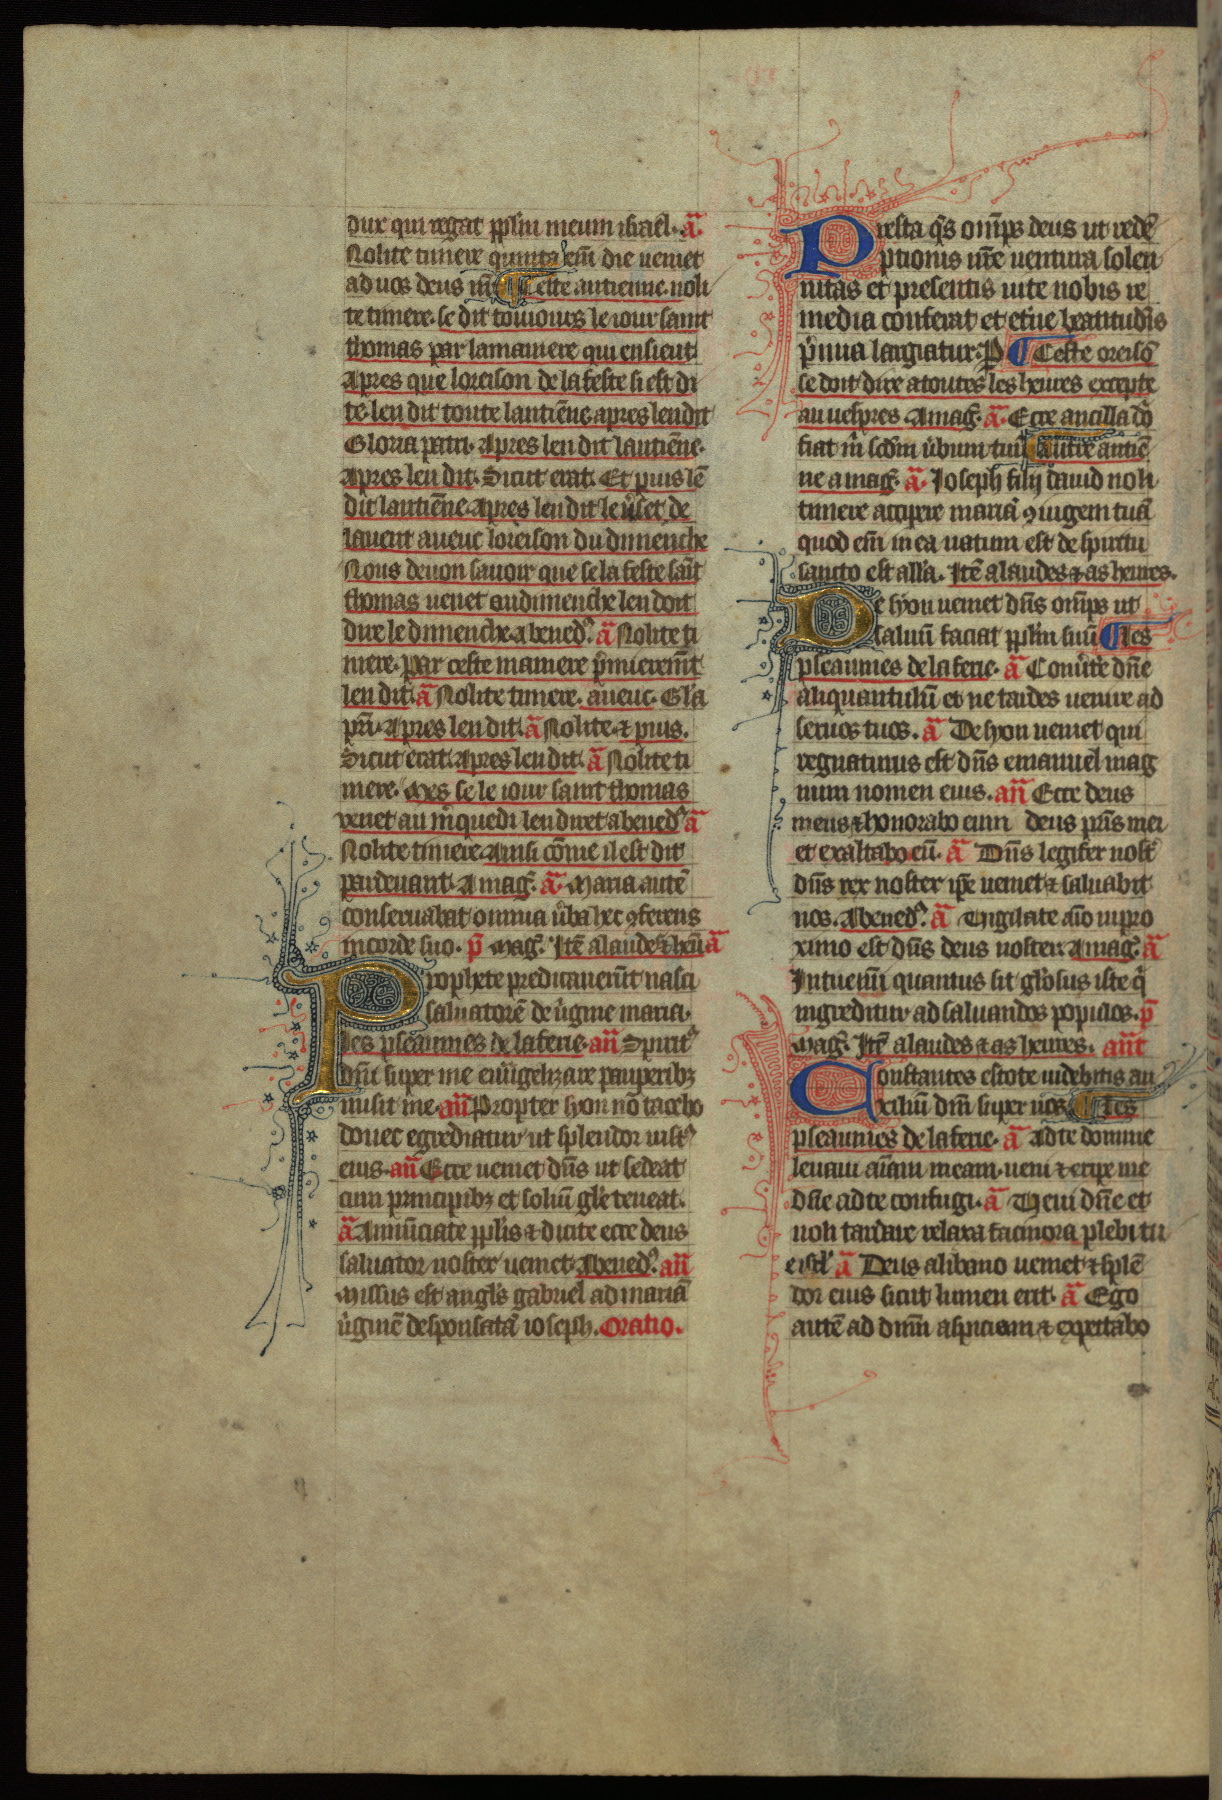 dux qui regat pplm meum israel. a᷃.
Nolite timere quinta em̄ die ueniet
ad uos deus nr̄ ¶ Ceste antienne. noli
te timere. se dit tousiours le iour saint
thomas par la maniere qui ensieut.
Apres que loreison de la feste si est di
te. len dit toute lantiēne. apres lendit
Gloria patri. apres len dit lantiēne.
apres len dit. Sicut erat. Et puis lē
dit lantiēne. apres len dit le u̾set de
lauent aueuc loreison du dimenche
Nous deuon sauoir que se la feste sāt
thomas uenet au dimenche len doit
dire le dimenche. a bened̾. a᷃ Nolite ti
mere. par ceste maniere p̾mierem̄t
len dit. a᷃ Nolite timere. aueuc. Gl̄a
pr̄i. apres len dit. a᷃ Nolite. & puis.
Sicut erat. apres len dit. a᷃ Nolite ti
mere. Mes se le iour saint thomas
venet au m̾quedi len diret a bened̾ a᷃
Nolite timere. ainsi cōme il est dit
par deuant. A mag̾. a᷃. Maria autē
conseruabat omnia u̾ba hec ꝯferens
in corde suo. p̄ mag̾. Itē a laudes & heur̄ a᷃
Prophete predicauerūt nasci
saluatorē de u̾gine maria.
Les pseaumes de la ferie. an̄ Spirit᷒
dn̄i super me euu̾gelizare pauperibꝫ
misit me. an̄ Propter syon nō tacebo
donec egrediatur ut splendor iust᷒
eius. an̄ Ecce ueniet dn̄s ut sedeat
cum principibꝫ et soliū gl̄e teneat.
a᷃ Annūciate ppl̄is & dicite ecce deus
saluator noster ueniet. Abened̾. an̄
Missus est angl̄s gabriel ad mariā
u̾ginē desponsatā ioseph. Oratio.
Presta q̄s om̄ps deus ut redē
ptionis nr̄e uentura solen
nitas et presentis uite nobis re
media conferat et et̾ne beatitudīs
p̾mia largiatur. P ¶ Ceste oreisō
se doit dire a toutes les heures excepte
au uespres. A mag̾. a᷃. Ecce ancilla dn̄i
fiat m̄ scdm̄ u̾bum tuū ¶ Autre antiē
ne a mag̾. a᷃. Ioseph filij dauid noli
timere accipere mariā ꝯiugem tuā
quod em̄ in ea natum est de spiritu
sancto est all̄a. Itē a laudes & as heures.
De syon ueniet dn̄s om̄ps ut
saluū faciat ppl̄m suū ¶ Les
pseaumes de la ferie. a᷃ Conu̾te dn̄e
aliquantulū et ne tardes uenire ad
seruos tuos. a᷃ De syon ueniet qui
regnaturus est dn̄s emanuel mag
num nomen eius. an̄ Ecce deus
meus & honorabo eum deus pr̄is mei
et exaltabo eū. a᷃ Dn̄s legifer nost̾
dn̄s rex noster ip̄e ueniet & saluabit
nos. Abened̾. a᷃ Uigilate aīo in pro
ximo est dn̄s deus noster. A mag̾. a᷃
Intuemī quantus sit gl̄osus iste q̄
ingreditur ad saluandos populos. p̄
mag̾. Itē a laudes & as heures. ant̄
Constantes estote uidebitis au
xiliū dn̄i super uos ¶ Les
pseaumes de la ferie. a᷃ Ad te domine
leuaui aīam meam. ueni & eripe me
dn̄e ad te confugi. a᷃ Ueni dn̄e et
noli tardare relaxa facinora plebi tu
e isrl̄ a᷃ Deus a libano ueniet & splē
dor eius sicut lumen erit. a᷃ Ego
autē ad dn̄m aspiciam & expectabo